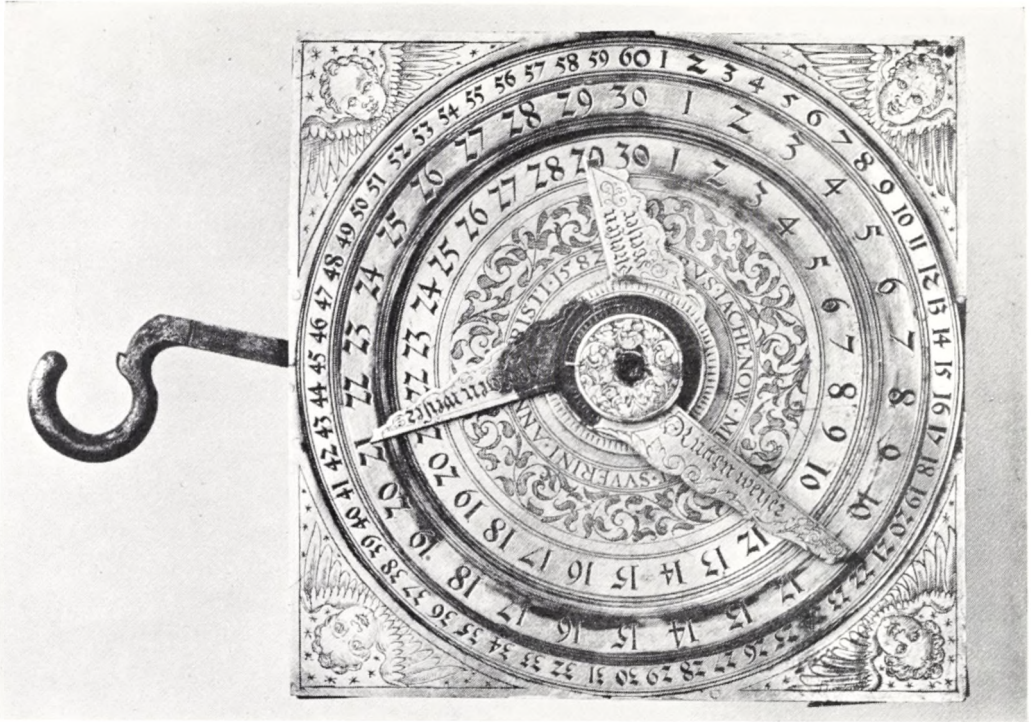 1 2 3 4 5 6 7 8 9 10 11 12 13 14 15 16 17 18 19 20 21 22 23 24 25 26 27 28 29 30 31 32 33 34 35 36 37 38 39 40 41 42 43 44 45 46 47 48 49 50 51 52 53 54 55 56 57 58 59 60
1 2 3 4 5 6 7 8 9 10 12 13 14 15 16 17 18 19 20 22 23 24 25 26 27 28 29 30
1 2 3 4 5 6 7 8 9 10 12 13 14 15 16 17 18 19 20 22 23 24 25 26 27 28 29 30
VS·TACHENOW·MI
·SVVERINI·ANN
RISTI·1582
Rutten weiser